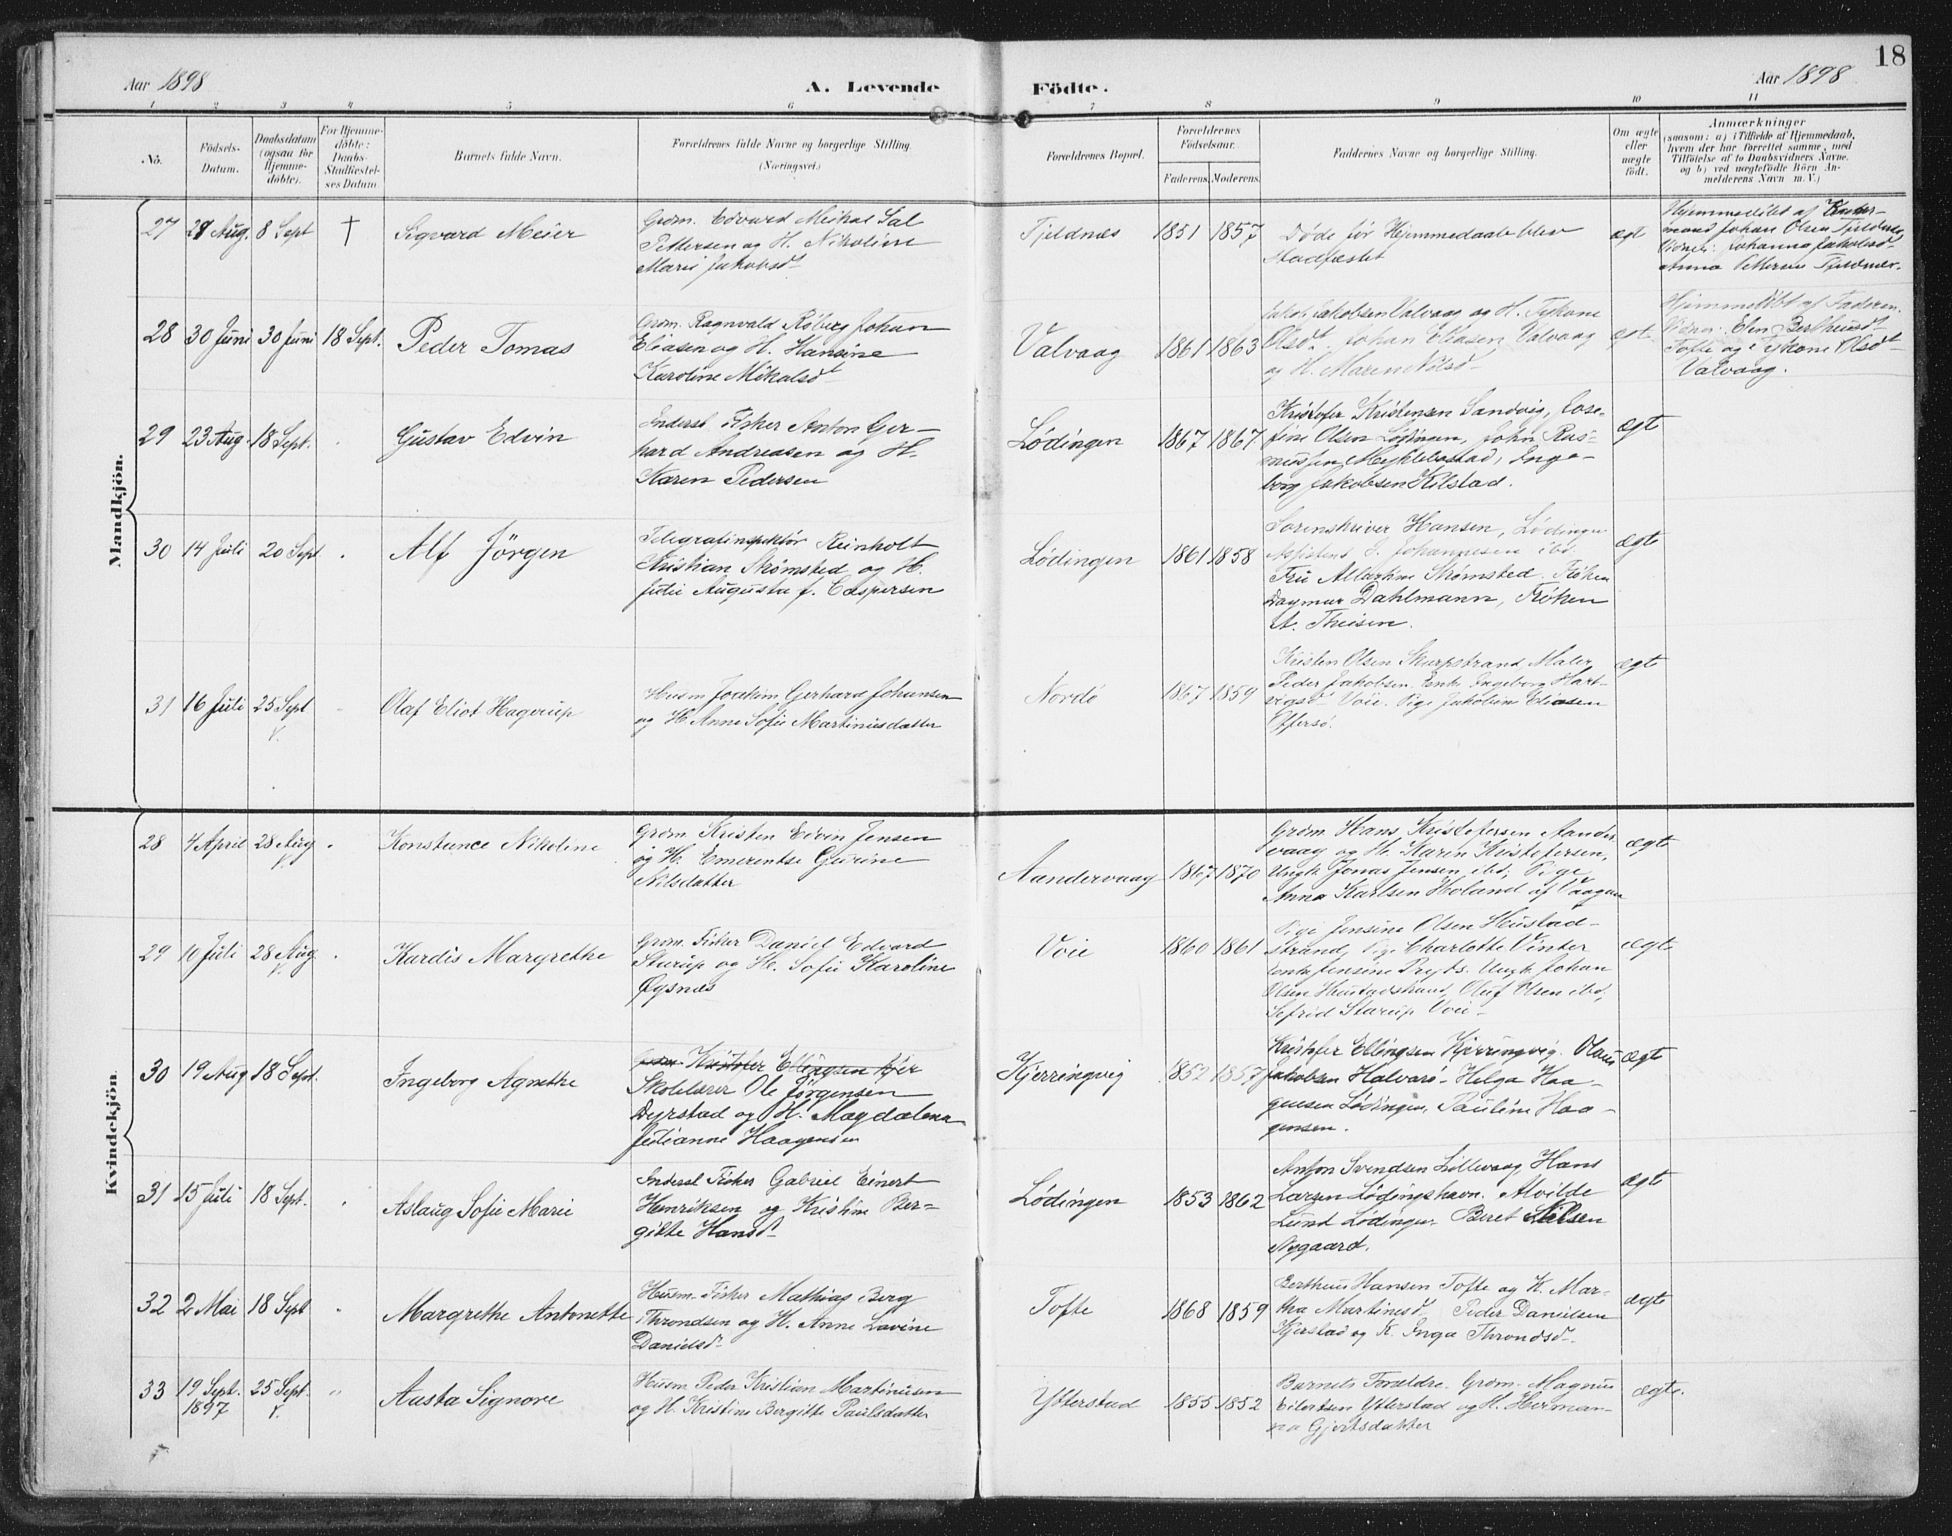 18
Aar 1898
A. Levende
Födte.
Aar 1898
1 2 3 4 5 6 7 8 9 10 11
No.
Födsels-
Datum.
Daabsdatum
(ogsaa for
Hjemme-
döbte).
For Hjemme-
döbte:
Daabs-
Stadfæstel-
ses Datum
Barnets fulde Navn.
Forældrenes fulde Navne og borgerlige Stilling.
(Næringsvei.)
Forældrenes Bopæl.
Forældrenes
Födselsaar.
Faderens. Moderens.
Faddernes Navne og borgerlige Stilling.
Om ægte
eller
uægte
födt.
Anmærkninger
(saasom: a) i Tilfælde af Hjemmedaab,
hvem der har forrettet samme, med
Tilföielse af to Daabsvidners Navne.
og b) ved uægtefödte Börn An-
melderens Navn m. V.)
Mandkjön.
27 Aug. 8 Sept † Sigvard Meier
Grdm. Edvard Mikal Sal
Pettersen og H. Nikoline
Marie Jakobsdt
Tjeldnæs 1851 1857
Døde før Hjemmedaab blev
Stadfæstet
ægt
Hjemmedöbt af
mand Johan Olsen
Vidner: Johanna Jakobsdt
Anna Pettersen Tjeldnæs.
28 30 Juni 30 Juni 18 Sept. Peder Tomas
Grdm. Ragnvald Røberg Johan
Eliasen og H. Hansine
Karoline Mikalsdt
Valvaag 1861 1863
Jakob Jakobsen Valvaag og H. Tykone
Olsdt. Johan Eliasen Valvaag
og H. Maren Nilsd
Hjemmedöbt af Faderen.
Vidner: Elen Bertheusdt
Tofte og Tykone Olsdt
Valvaag.
29 23 Aug. 18 Sept. Gustav Edvin
Inderst Fisker Anton Ger-
hard Andreasen og H.
Karen Pedersen
Lødingen 1867 1867
Kristofer Kristensen Sandvig, Jose-
fine Olsen Lødingen, John Ras-
mussen Myklebostad, Inge-
borg Jakobsen Kilstad.
ægt
30 14 Juli 20 Sept Alf Jörgen
Telegrafinspektør Reinholt
Kristian Strømsted og H.
Julie Augusta f. Caspersen
Lødingen 1861 1858
Sorenskriver Hansen, Lødingen
Johannesen ibd.
Fru Albertine Strømsted. Frøken
Dagmar Dahlmann, Frøken
A. Theisen.
ægte
31 16 Juli 25 Sept Olaf Eliot Hagerup
Husm Joakim Gerhard Johansen
og H. Anne Sofie Martinusdatter
Nordö 1867 1859
Kristen Olsen Skarpstrand Maler
Peder Jakobsen Enk. Ingeborg Hart-
vigsd Voie. Pige Jakobine Eliasen
Offersö.
ægte
Kvindekjön.
28 4 April 28 Aug Konstance Nikoline
Grdm Kristen Edvin Jensen
og H. Emerentse Gurine
Nilsdatter
Aandervaag 1867 1870
Grdm Hans Kristofersen Aander-
vaag og H. Karen Kristofersen,
Ungk. Jonas Jensen ibd; Pige
Anna Karlsen Holand af Vaagan
ægte
29 10 Juli 28 Aug. Kardis Margrethe
Grdm. Fisker Daniel Edvard
Sturup og H. Sofie Karoline
Øysnæs
Voie 1860 1861
Pige Jensine Olsen Hustad-
strand, Pige Charlotte Vinter
Enke Jensine Prytz. Ungk. Johan
Olsen Hustadstrand, Oluf Olsen ibd,
Sefrid Starup Voie.
ægte
30 19 Aug 18 Sept. Ingeborg Agnethe
Kristofer Ellingsen
Skolelærer Ole Jörgensen
Dyrstad og H. Magdalena
Julianne Haagensen
Kjerringvig 1852 1857
Kristofer Ellingsen Kjerringvig. Olaus
Jakobsen Halvarö. Helga Haa-
gensen Lødingen, Pauline Haa-
gensen.
ægte
31 15 Juli 18 Sept. Aslaug Sofie Marie
Inderst Fisker Gabriel Einert
Henriksen og Kristine Ber-
gitte Hansd
Lødingen 1853 1862
Anton Svendsen Lillevaag Hans
Larsen Lødingshavn. Alvilde
Lund Lødingen. Beret Nilsen
Nygaard.
ægte
32 2 Mai 18 Sept Margrethe Antonette
Husm. Fisker Mathias Berg
Throndsen og H. Anne Lovine
Danielsd.
Tofte 1868 1859
Bertheus Hansen Tofte og K. Mar-
tha Martinesd. Peder Danielsen
Kjerstad og K. Inga Throndsd.
ægte
33 19 Sept. 1897 25 Sept. Aasta Signore
Husm. Peder Kristian Martinusen
og H. Kristine Bergitte Paulsdatter
Ytterstad 1855 1852
Barnets Forældre. Grdm. Magnus
Eilertsen Ytterstad og H. Herman-
na Gjertsdatter
ægte.